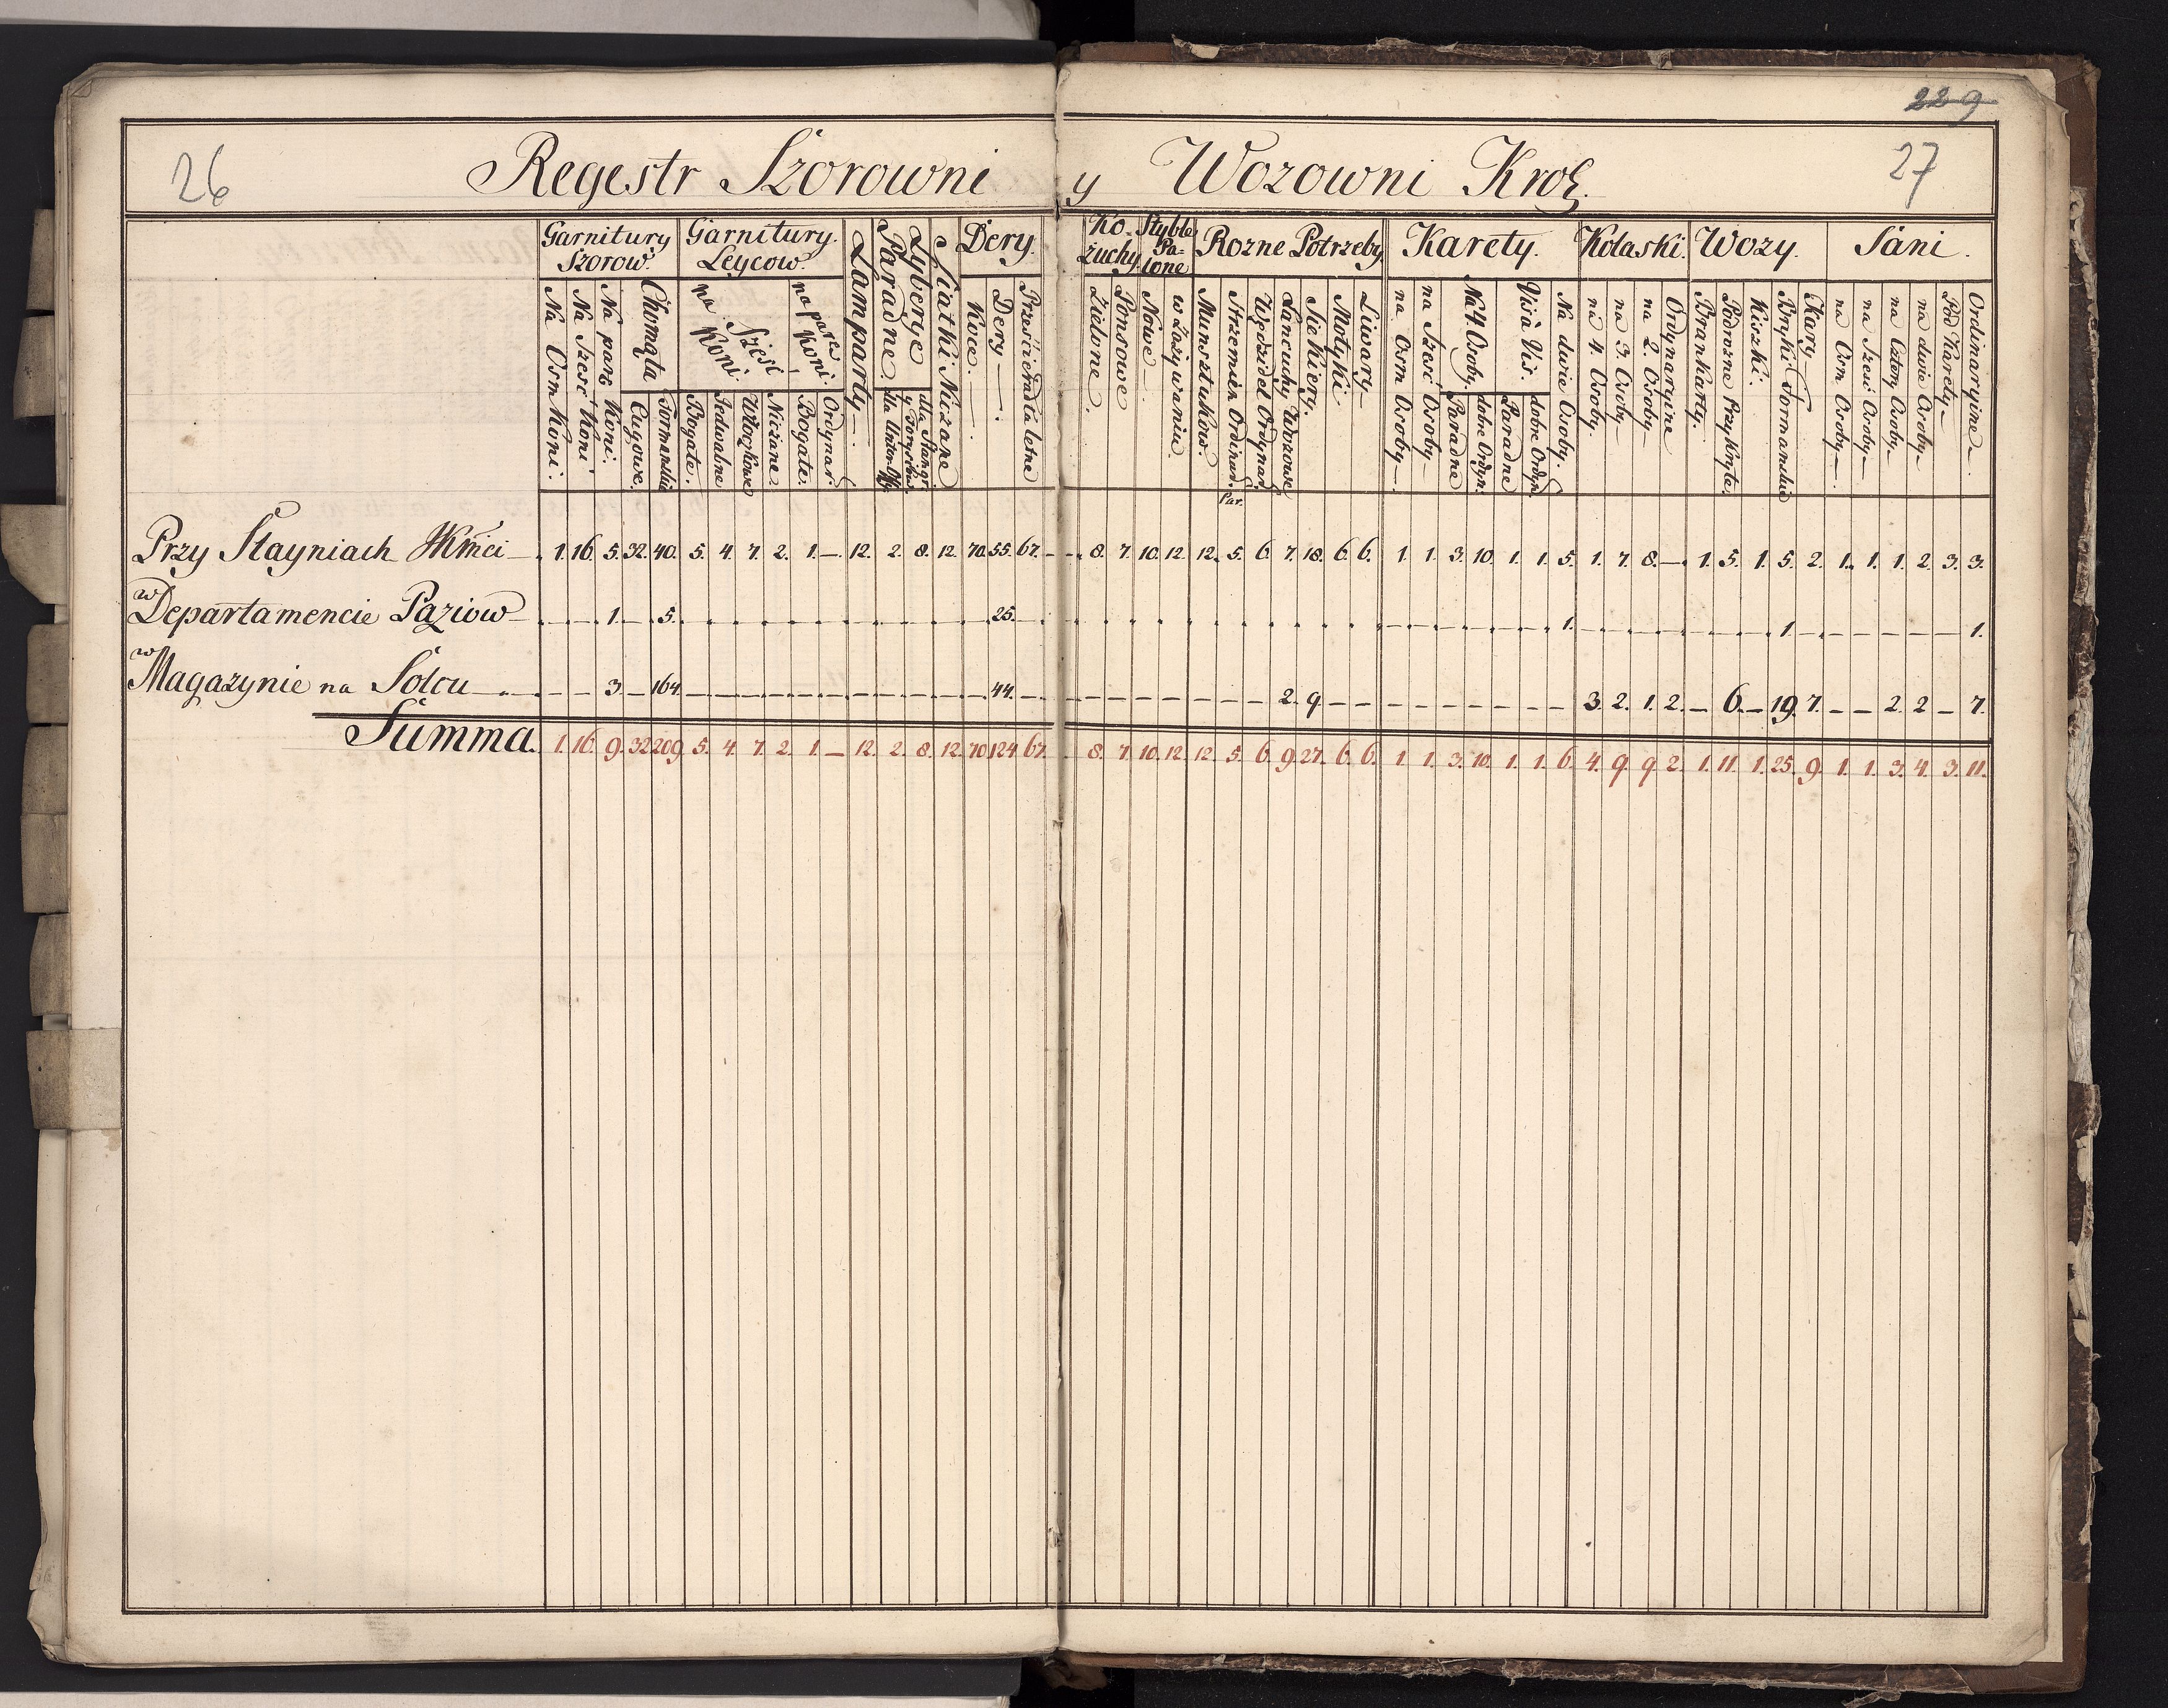 229
26 Regestr Szorowni y Wozowni Krol. 27
Garnitury Szorow. Garnitury Leycow. Lamparty Lyberye Paradne Siatki Niciane Dery. Kożuchy Styble Palone Rozne Potrzeby Karety. Kolaski. Wozy. Sani.
Na Osm Koni. Na Szesć Koni Na parę Koni. Chomąta Cugowe. Formanskie na Szesć Koni. Bogate. Jedwabne Włoczkowe Niciane na parę Koni. Bogate. Ordynar. dla Unter Off. dla Stangr. y Forysiow. Koce. Dery Prześcieradła letne
Zielone. Ponsowe Nowe w Zażywaniu. Munsztukow. Strzemien Ordinar. Par. Wędzideł Ordynar. Łancuchy Wozowe Siekiery. Motyki Liwary na Osm Osoby na Szesć Osoby Na 4. Osoby. Paradne dobre Ordyn: Vis à Vis. Paradne dobre Ordyn Na dwie Osoby. na 4. Osoby. na 3. Osoby na 2. Osoby Ordynaryine Brankarty. Podrozne Przykryte. Kiszki. Bryki Formanskie Kary na Osm Osoby na Szesć Osoby na Cztery Osoby na dwie Osoby Pod Karety Ordinaryine
Przy Stayniach JKmci 1. 16. 5. 32. 40. 5. 4. 7. 2. 1. — 12. 2. 8. 12. 70. 55. 67. 8. 7. 10. 12. 12. 5. 6. 7. 18. 6. 6. 1. 1. 3. 10. 1. 1. 5. 1. 7. 8. — 1. 5. 1. 5. 2. 1. 1. 1. 2. 3. 3.
w Departamencie Paziow 1. 5. 25. 1. 1. 1.
w Magazynie na Solcu 3. 164. 44. 2. 9. 3. 2. 1. 2. — 6. — 19. 7. — — 2. 2 — 7.
Summa. 1. 16. 9. 32. 209. 5. 4. 7. 2. 1. — 12. 2. 8. 12. 70. 124. 67. 8. 7. 10. 12. 12. 5. 6. 9. 27. 6. 6. 1. 1. 3. 10. 1. 1. 6. 4. 9. 9. 2. 1. 11. 1. 25. 9. 1. 1. 3. 4. 3. 11.